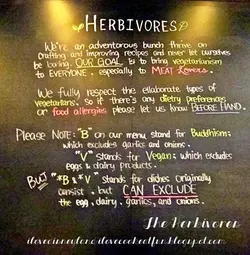 HERBIVORES
We're an adventorous bunch thrive on
crafting and improving recipes and never let ourselves
be boring. OUR GOAL is to bring vegetarianism
to EVERYONE, especially to MEAT Lovers.
We fully respect the ellaborate types of
vegetarians. So if there's any dietry preferences
or food allergies please let us know BEFORE HAND.
Please NOTE: "B" on our menu stand for Buddhism;
which excludes garlic and onions.
"V" stands for Vegan; which excludes
eggs & dairy products.
BUT "*B & V" stands for dishes originally
consist, but CAN EXCLUDE
the egg, dairy, garlic, and onions.
The Herbivores